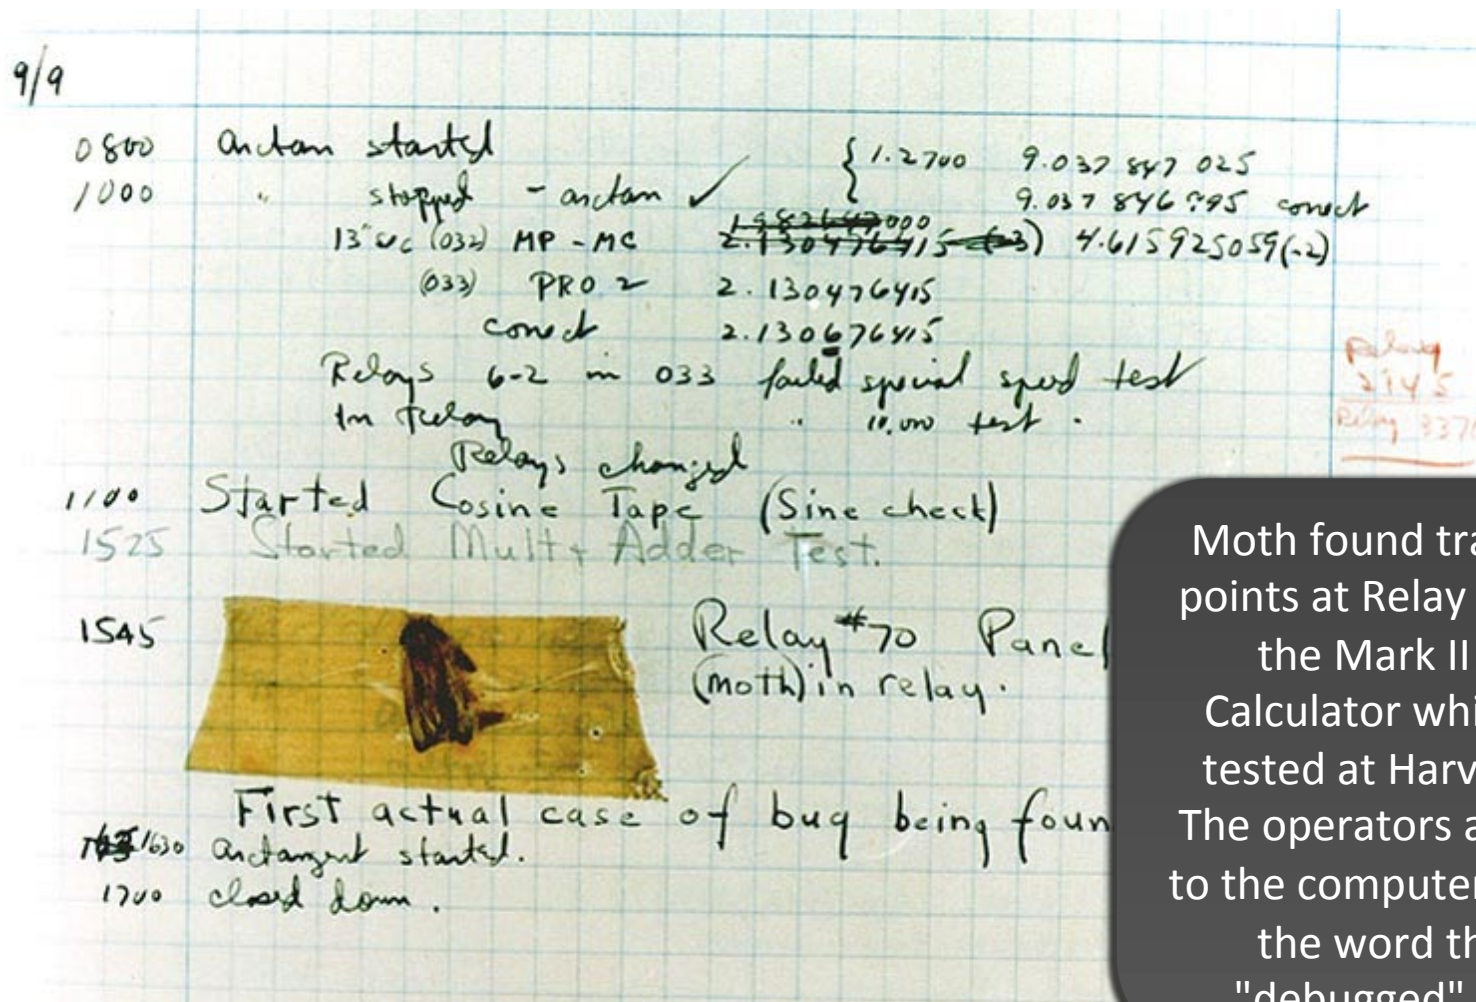 9/9
0800 arctan started { 1.2700 9.037 847 025
1000 " stopped - arctan ✓ 9.037 846 995 correct
13" sec (032) MP - MC 2.130476415 (-3) 4.615925059(-2)
(033) PRO 2 2.130476415
correct 2.130676415
Relays 6-2 in 033 failed special speed test
In Relay " 10,000 test .
Relay
2145
Relay 337
Relays changed
1100 Started Cosine Tape (Sine check)
1525 Started Mult + Adder Test.
1545 Relay #70 Panel
(moth) in relay.
First actual case of bug being foun
1630 arctangent started.
1700 closed down .
Moth found tra
points at Relay
the Mark II
Calculator whi
tested at Harv
The operators a
to the computer
the word th
"debugged"